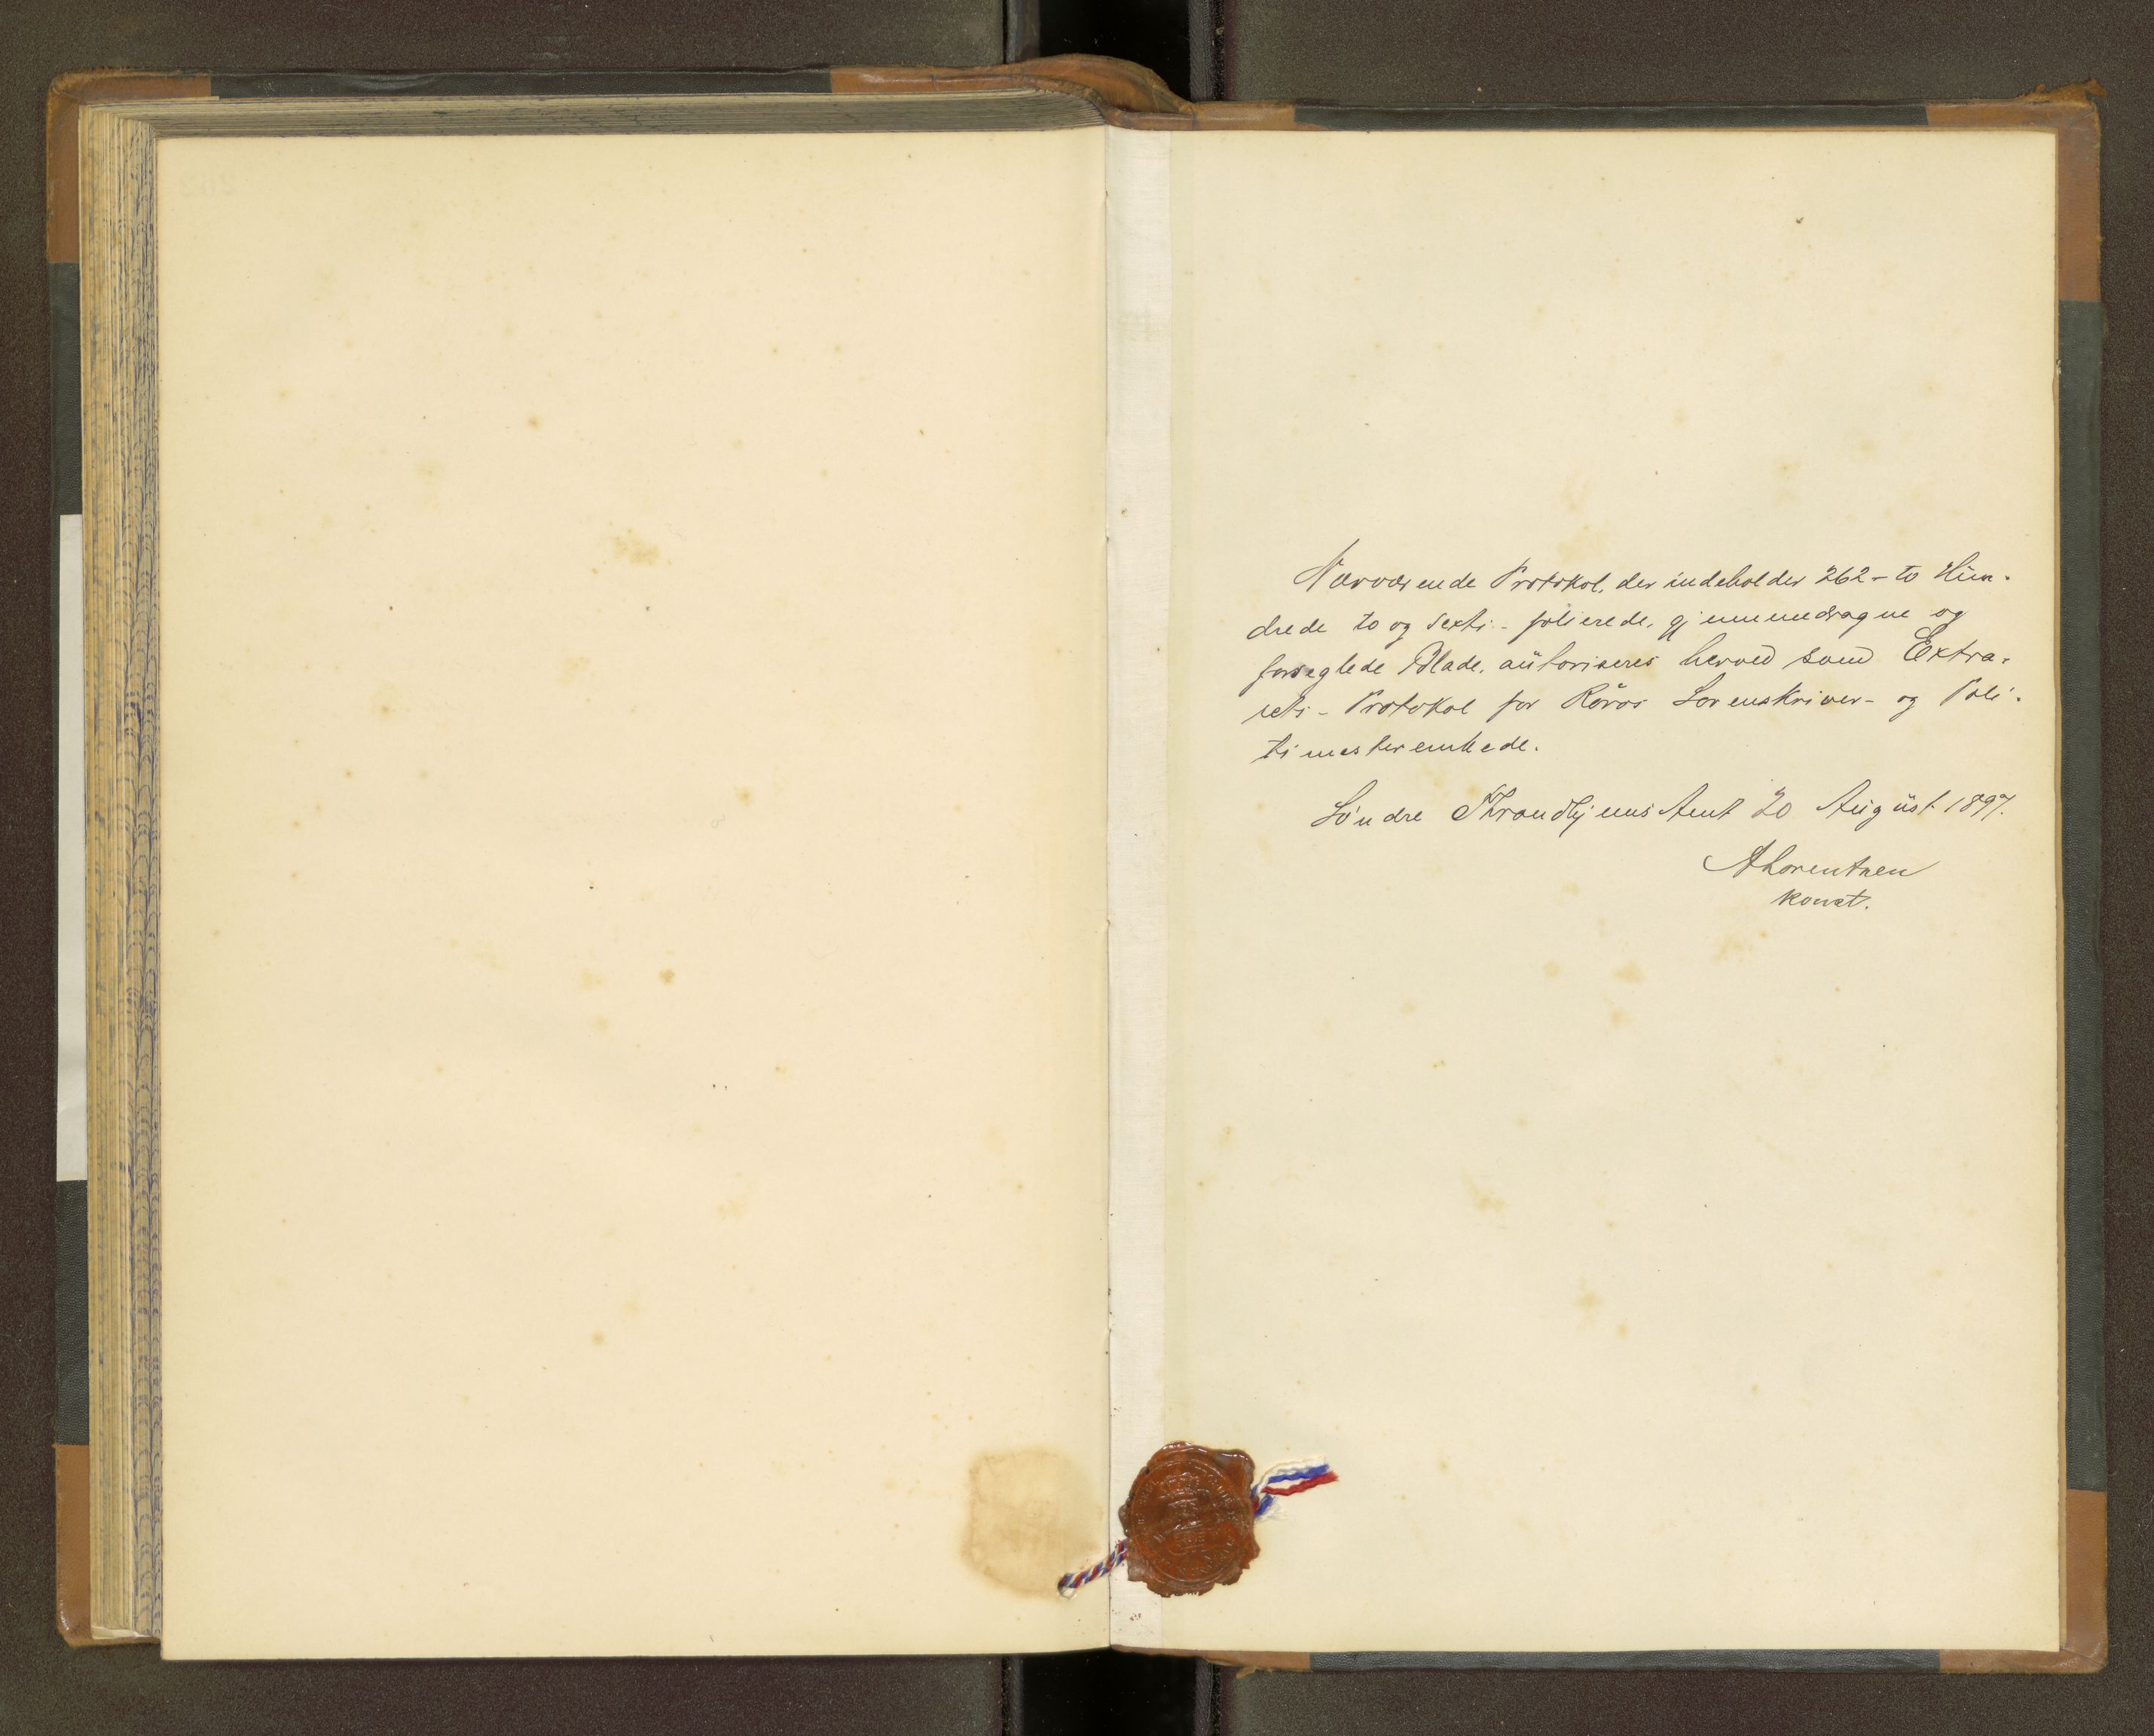 Nærværende Protokol, der indeholder 262 - to Hun-
drede to og sexti - folierede, gjennemdragne og
forseglede Blade, autoriseres herved som Extra-
rets - Protokol for Röros Sorenskriver- og Poli-
timesterembede.
Söndre Throndhjems Amt 20 August 1897.
A Lorentzen
konst.